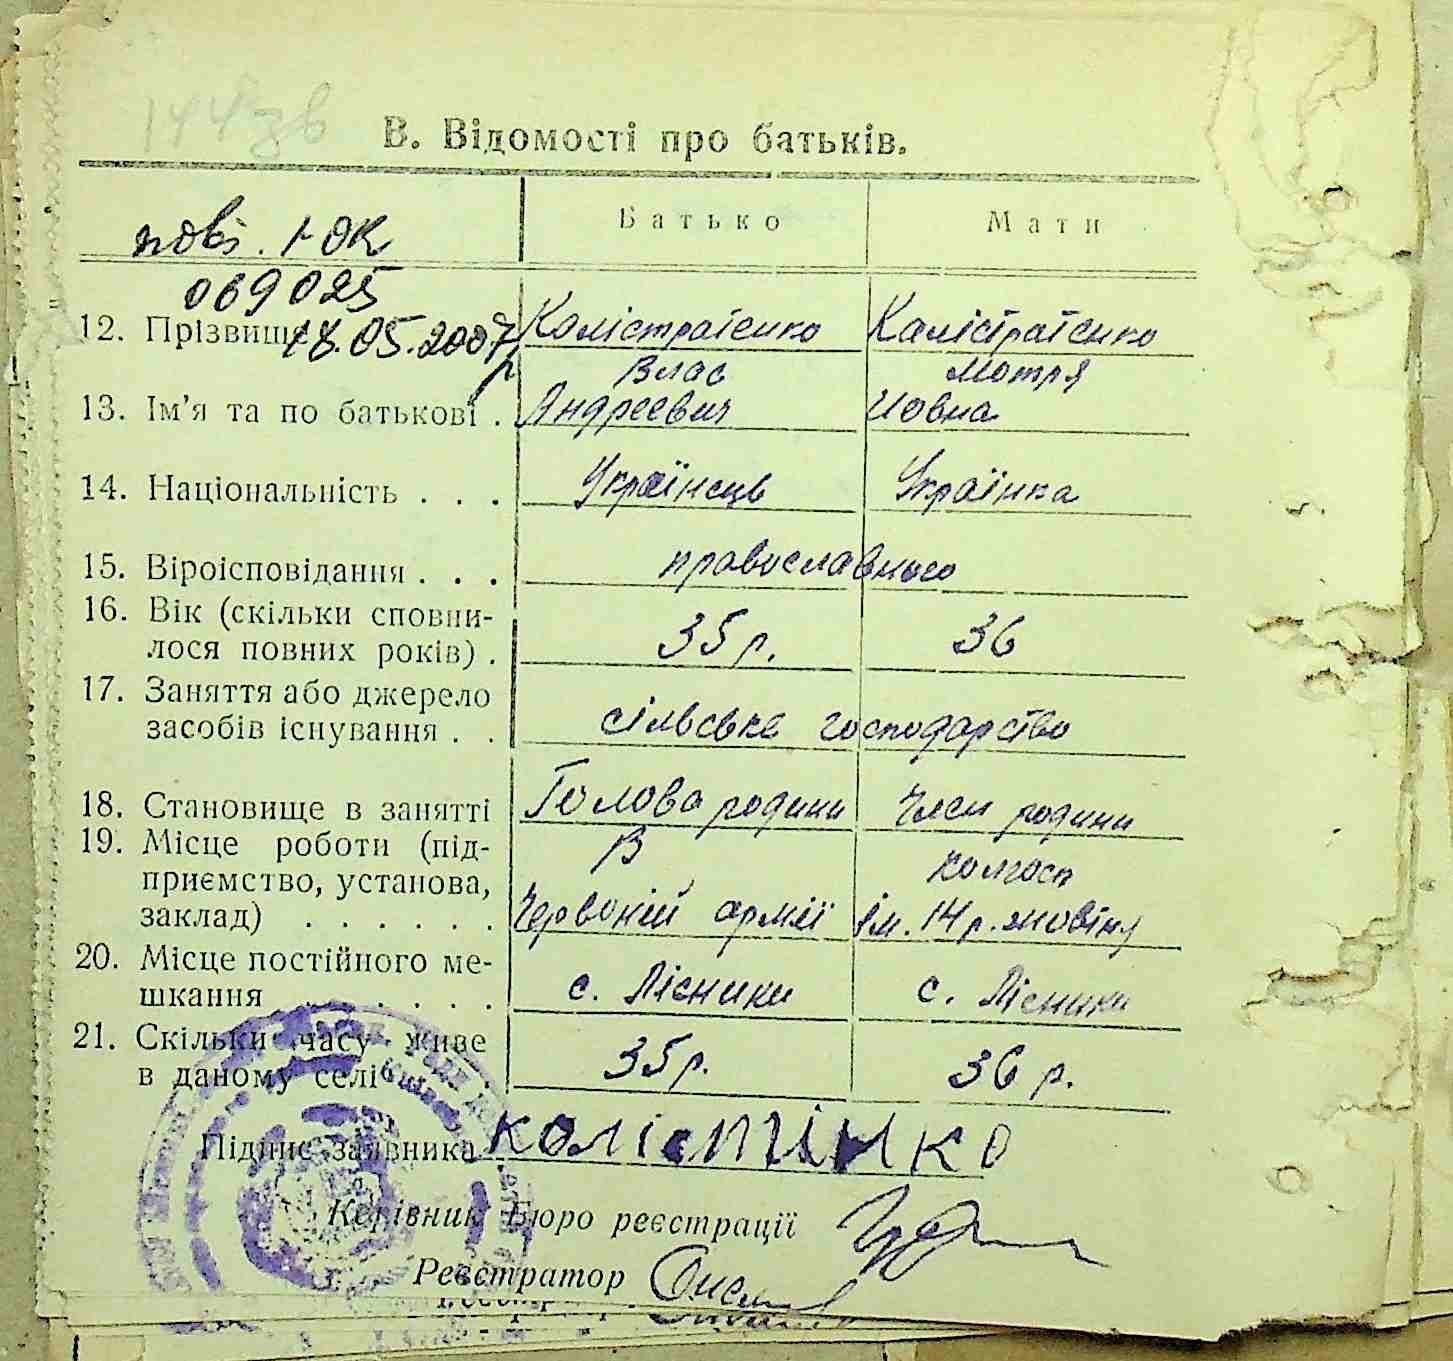 144зв
В. Відомості про батьків.
Батько Мати
повт. І-ОК
069025
18.05.2007р
12. Прізвище Калістратенко Калістратенко
Влас Мотря
13. Ім'я та по батькові . Андреевич Йовна
14. Національність . . . Українець Українка
15. Віроісповідання . . . православного
16. Вік (скільки сповни-
лося повних років) . 35 р. 36
17. Заняття або джерело
засобів існування . . сільське господарство
18. Становище в занятті Голова родини Член родини
19. Місце роботи (під- В колгосп
приємство, установа,
заклад) . . . . . . Червоній армії ім. 14 р. жовтня
20. Місце постійного ме-
шкання . . . . . . с. Лісники с. Лісники
21. Скільки часу живе
в даному селі 35 р. 36 р.
Підпис заявника
Керівник Бюро реєстрації
Реєстратор